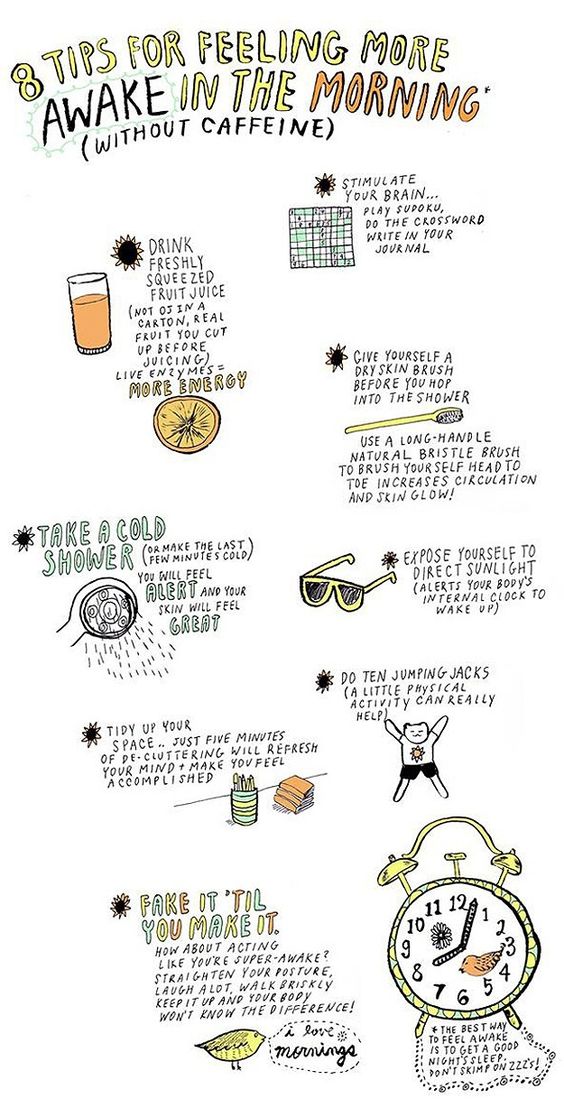 8 TIPS FOR FEELING MORE
AWAKE IN THE MORNING*
(WITHOUT CAFFEINE)
STIMULATE
YOUR BRAIN...
PLAY SUDOKU,
DO THE CROSSWORD
WRITE IN YOUR
JOURNAL
DRINK
FRESHLY
SQUEEZED
FRUIT JUICE
(NOT OJ IN A
CARTON, REAL
FRUIT YOU CUT
UP BEFORE
JUICING)
LIVE ENZYMES =
MORE ENERGY
GIVE YOURSELF A
DRY SKIN BRUSH
BEFORE YOU HOP
INTO THE SHOWER
USE A LONG-HANDLE
NATURAL BRISTLE BRUSH
TO BRUSH YOURSELF HEAD TO
TOE INCREASES CIRCULATION
AND SKIN GLOW!
TAKE A COLD
SHOWER (OR MAKE THE LAST
FEW MINUTES COLD)
YOU WILL FEEL
ALERT AND YOUR
SKIN WILL FEEL
GREAT
EXPOSE YOURSELF TO
DIRECT SUNLIGHT
(ALERTS YOUR BODY'S
INTERNAL CLOCK TO
WAKE UP)
DO TEN JUMPING JACKS
(A LITTLE PHYSICAL
ACTIVITY CAN REALLY
HELP)
TIDY UP YOUR
SPACE.. JUST FIVE MINUTES
OF DE-CLUTTERING WILL REFRESH
YOUR MIND + MAKE YOU FEEL
ACCOMPLISHED
FAKE IT 'TIL
YOU MAKE IT.
HOW ABOUT ACTING
LIKE YOU'RE SUPER-AWAKE?
STRAIGHTEN YOUR POSTURE,
LAUGH ALOT, WALK BRISKLY
KEEP IT UP AND YOUR BODY
WON'T KNOW THE DIFFERENCE!
i love
mornings
12
1
2
3
4
5
6
7
8
9
10
11
*THE BEST WAY
TO FEEL AWAKE
IS TO GET A GOOD
NIGHT'S SLEEP.
DON'T SKIMP ON ZZZ'S!